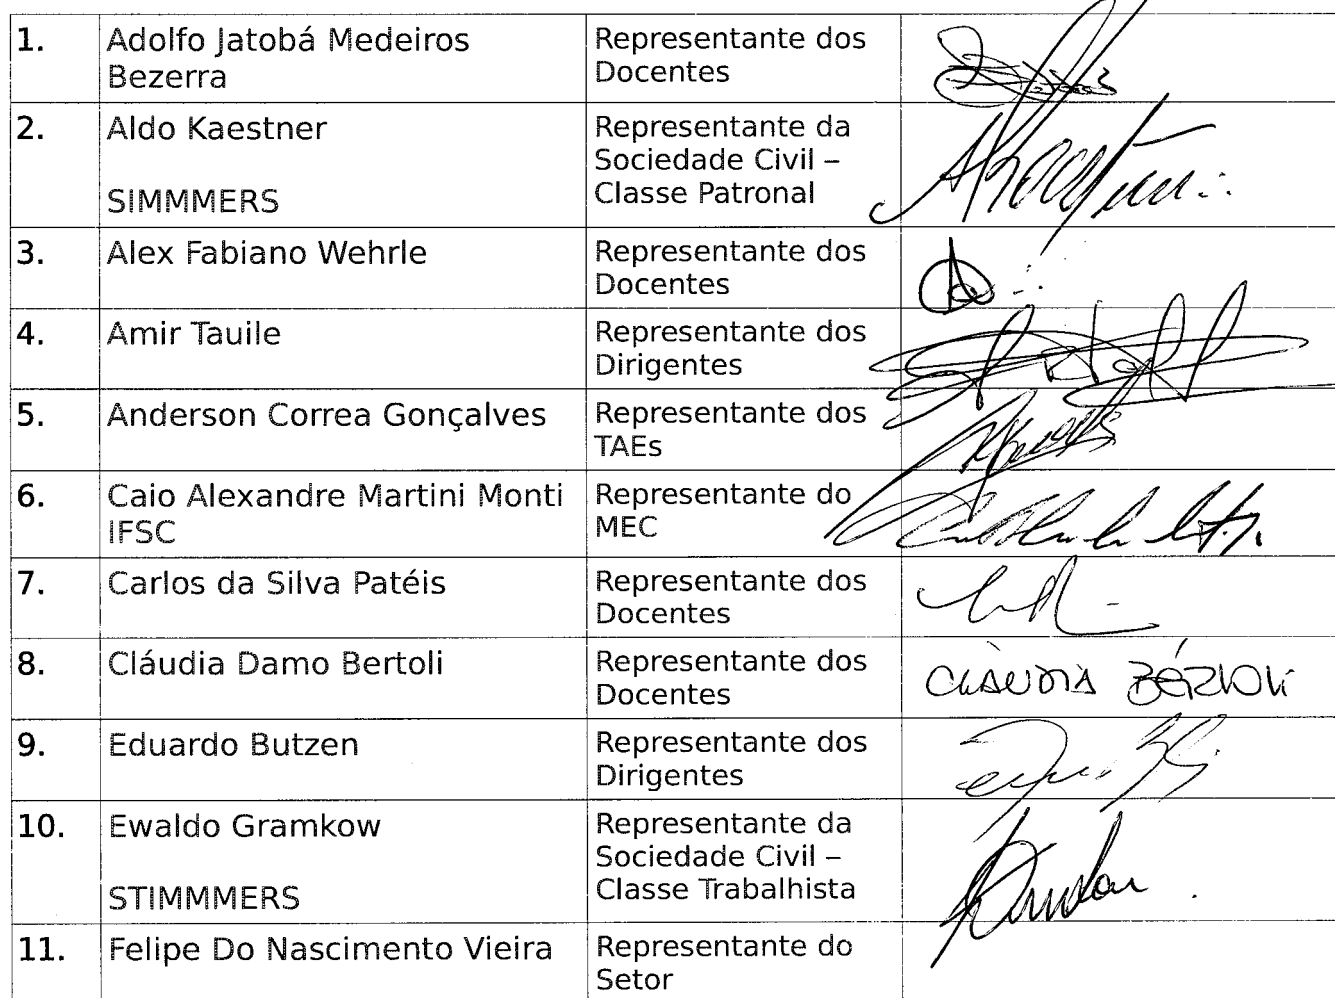 1. Adolfo Jatobá Medeiros Representante dos
Bezerra Docentes
2. Aldo Kaestner Representante da
Sociedade Civil –
SIMMMERS Classe Patronal
3. Alex Fabiano Wehrle Representante dos
Docentes
4. Amir Tauile Representante dos
Dirigentes
5. Anderson Correa Gonçalves Representante dos
TAEs
6. Caio Alexandre Martini Monti Representante do
IFSC MEC
7. Carlos da Silva Patéis Representante dos
Docentes
8. Cláudia Damo Bertoli Representante dos CLÁUDIA BÉRTOLI
Docentes
9. Eduardo Butzen Representante dos
Dirigentes
10. Ewaldo Gramkow Representante da
Sociedade Civil –
STIMMMERS Classe Trabalhista
11. Felipe Do Nascimento Vieira Representante do
Setor